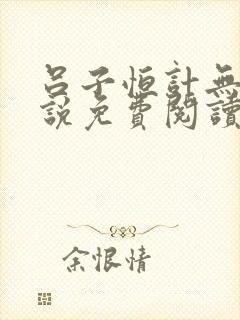 呂子恒計無
說免費閱讀
余恨情